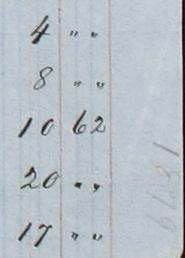 4 " "
8 " "
10 62
20 " "
17 " "